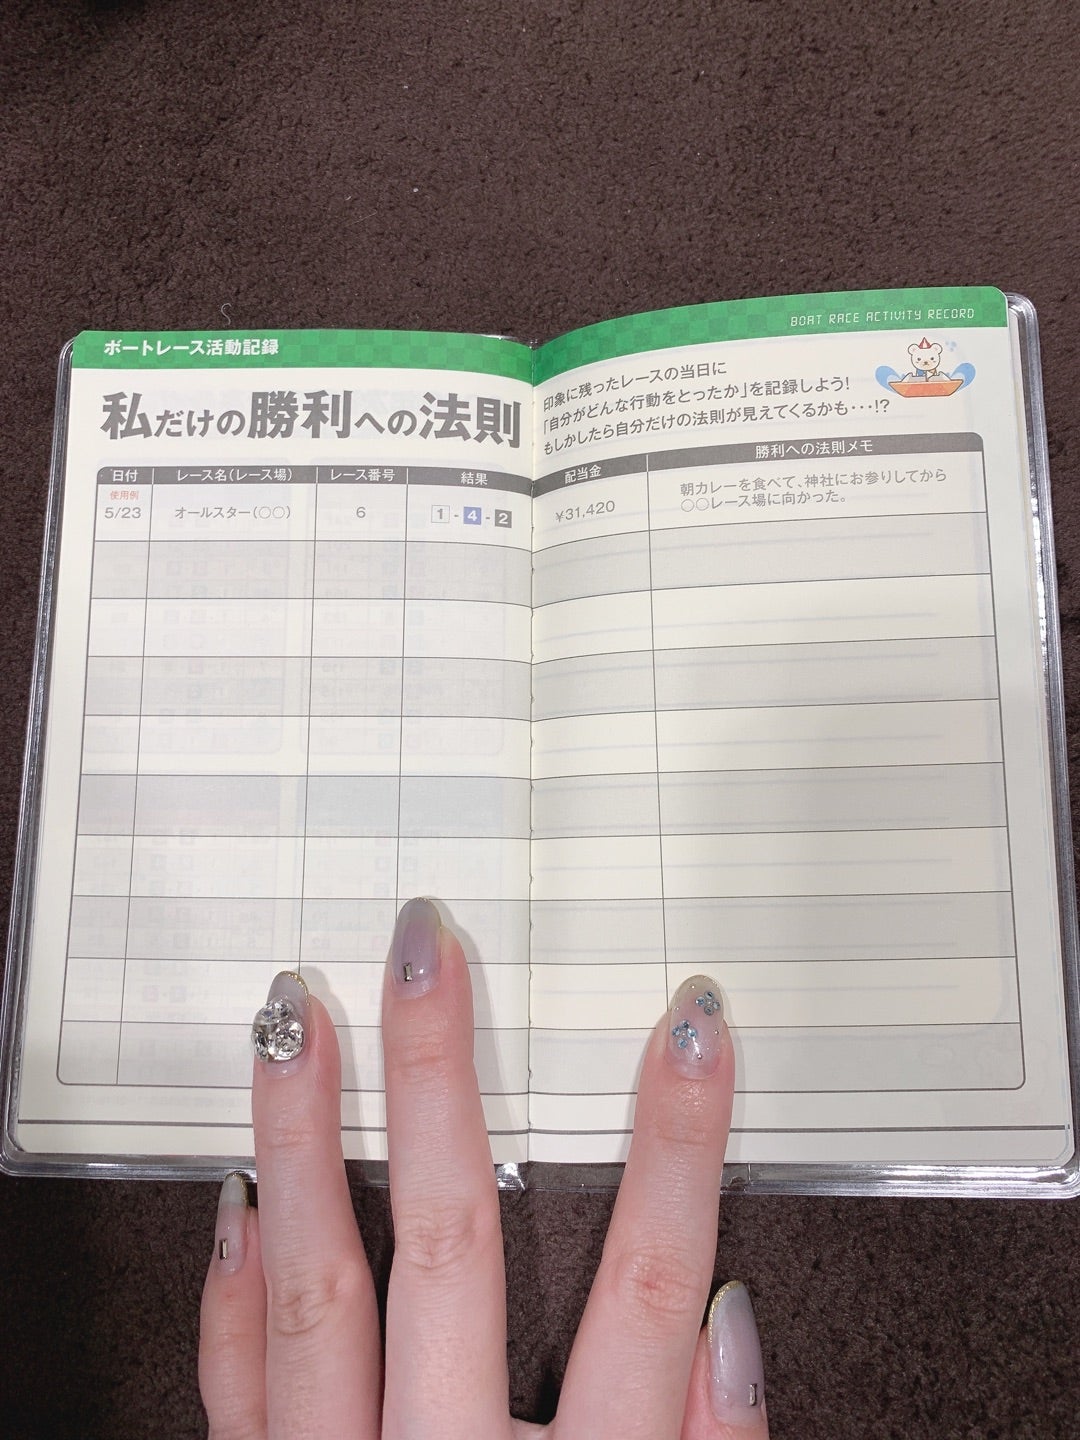 ボートレース活動記録
私だけの勝利への法則
BOAT RACE ACTIVITY RECORD
印象に残ったレースの当日に
「自分がどんな行動をとったか」を記録しよう!
もしかしたら自分だけの法則が見えてくるかも・・・!?
日付 レース名(レース場) レース番号 結果 配当金 勝利への法則メモ
使用例
5/23 オールスター(○○) 6 1-4-2 ¥31,420 朝カレーを食べて、神社にお参りしてから
○○レース場に向かった。